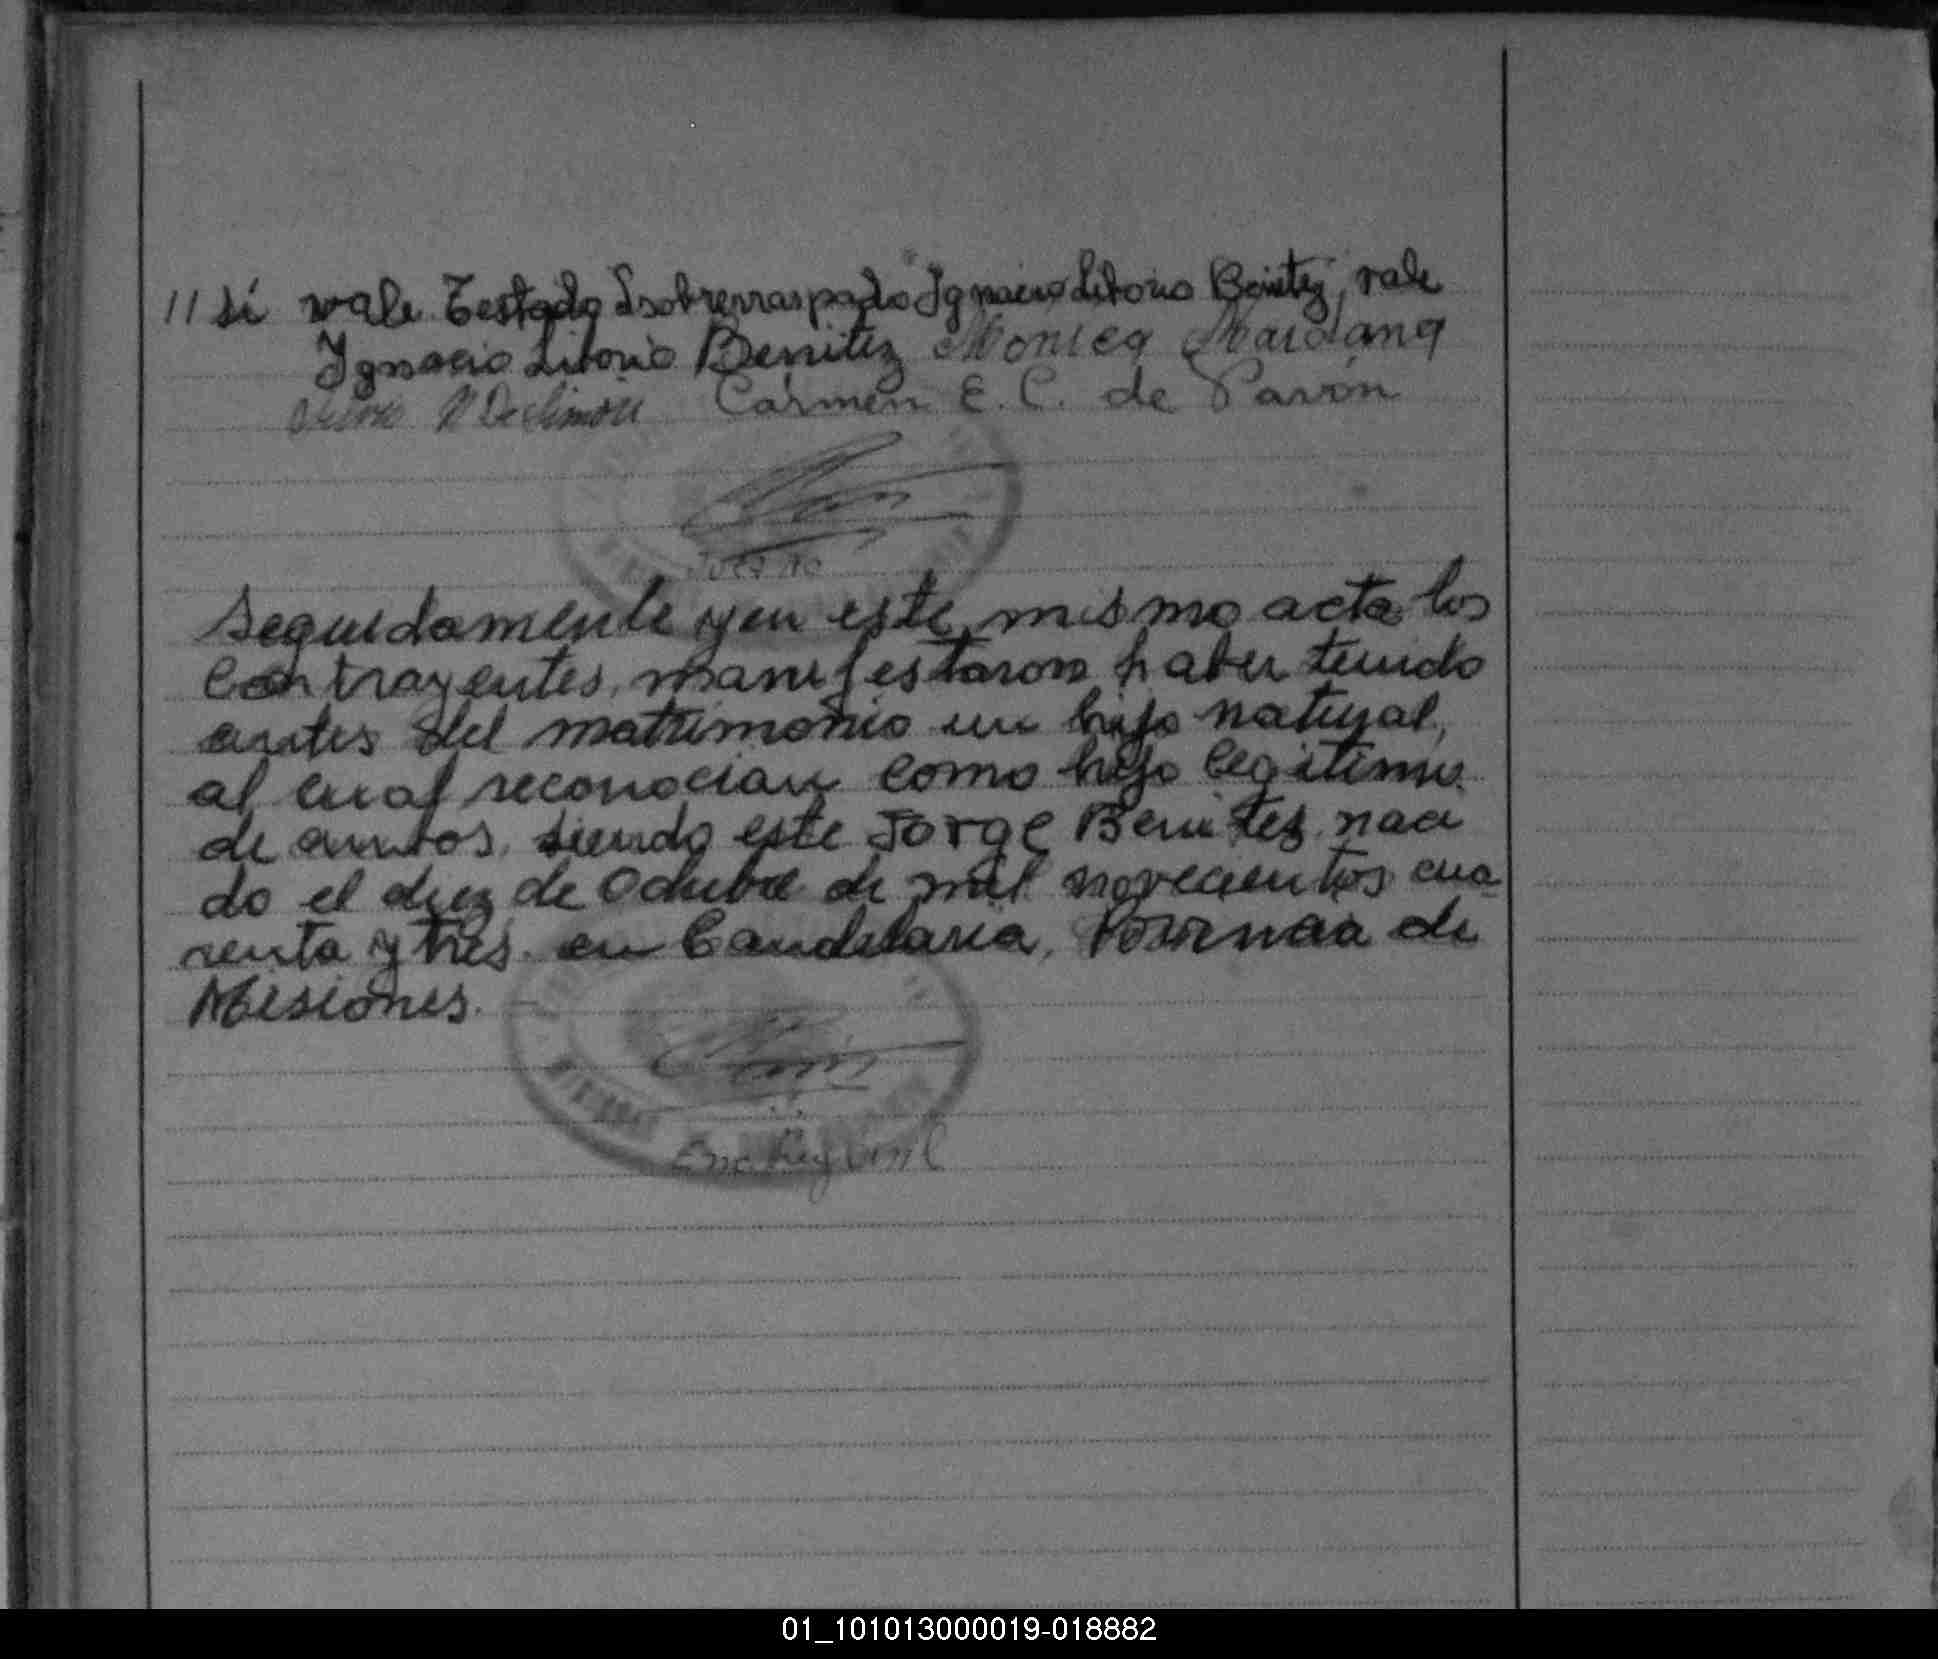 // si vale Testado I sobrerraspado "Ignacio Litorio Benitez", vale
Ignacio Litorio Benitez Monica Maidana
Carmen E. C. de Pavón
Seguidamente y en este mismo acta los
Contrayentes, manifestaron haber tenido
antes del matrimonio un hijo natural,
al cual reconocian como hijo legitimo
de ambos, siendo este Jorge Benitez naci
do el diez de Octubre de mil novecientos cua-
renta y tres en Candelaria, Provincia de
Misiones.
Enc. Reg Civil
01_101013000019-018882